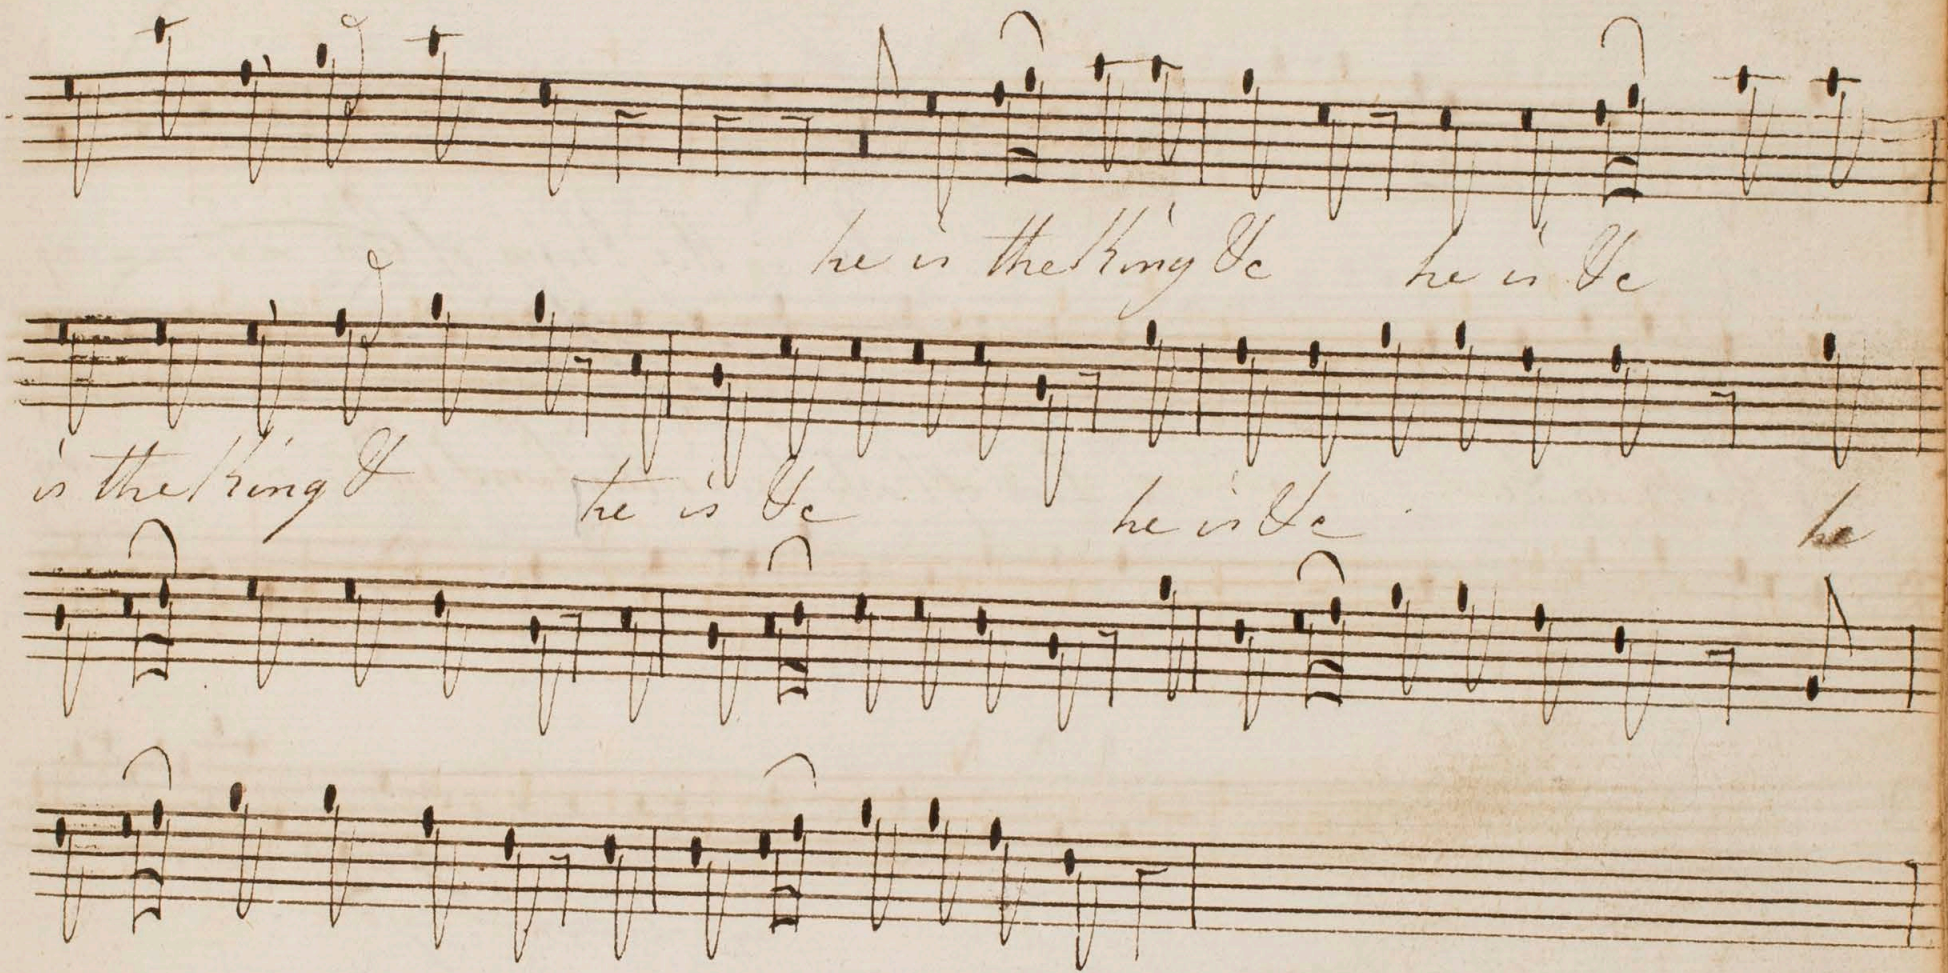 he is the King &c he is &c
is the King & he is &c he is &c he